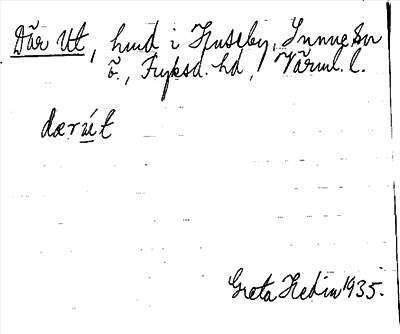 Där Ut, hmd i Husby, Sunne sn
ö., Fryksd. hd, Värml. l.
dærút
Greta Hedin 1935.